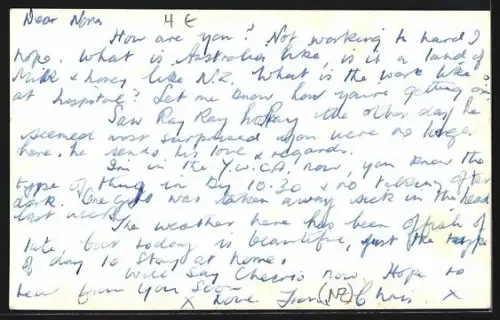 Dear Nora 4 E
How are you? Not working to hard I
hope. What is Australia like, is it a land of
Milk & honey like N.Z. What is the work like
at hospital? Let me know how you're getting on.
Saw Ray Ray the other day he
seemed most surprised you were no longer
here. he sends his love & regards.
I'm in the Y.W.C.A. now, you know the
type of thing in by 10.30 & no talking after
dark. One girl was taken away sick in the head
last week.
The weather here has been offish of
late, but today is beautiful, just the type
of day to stay at home.
Will say Cheerio now. Hope to
hear from you soon
x Love from (NZ) Chris. x